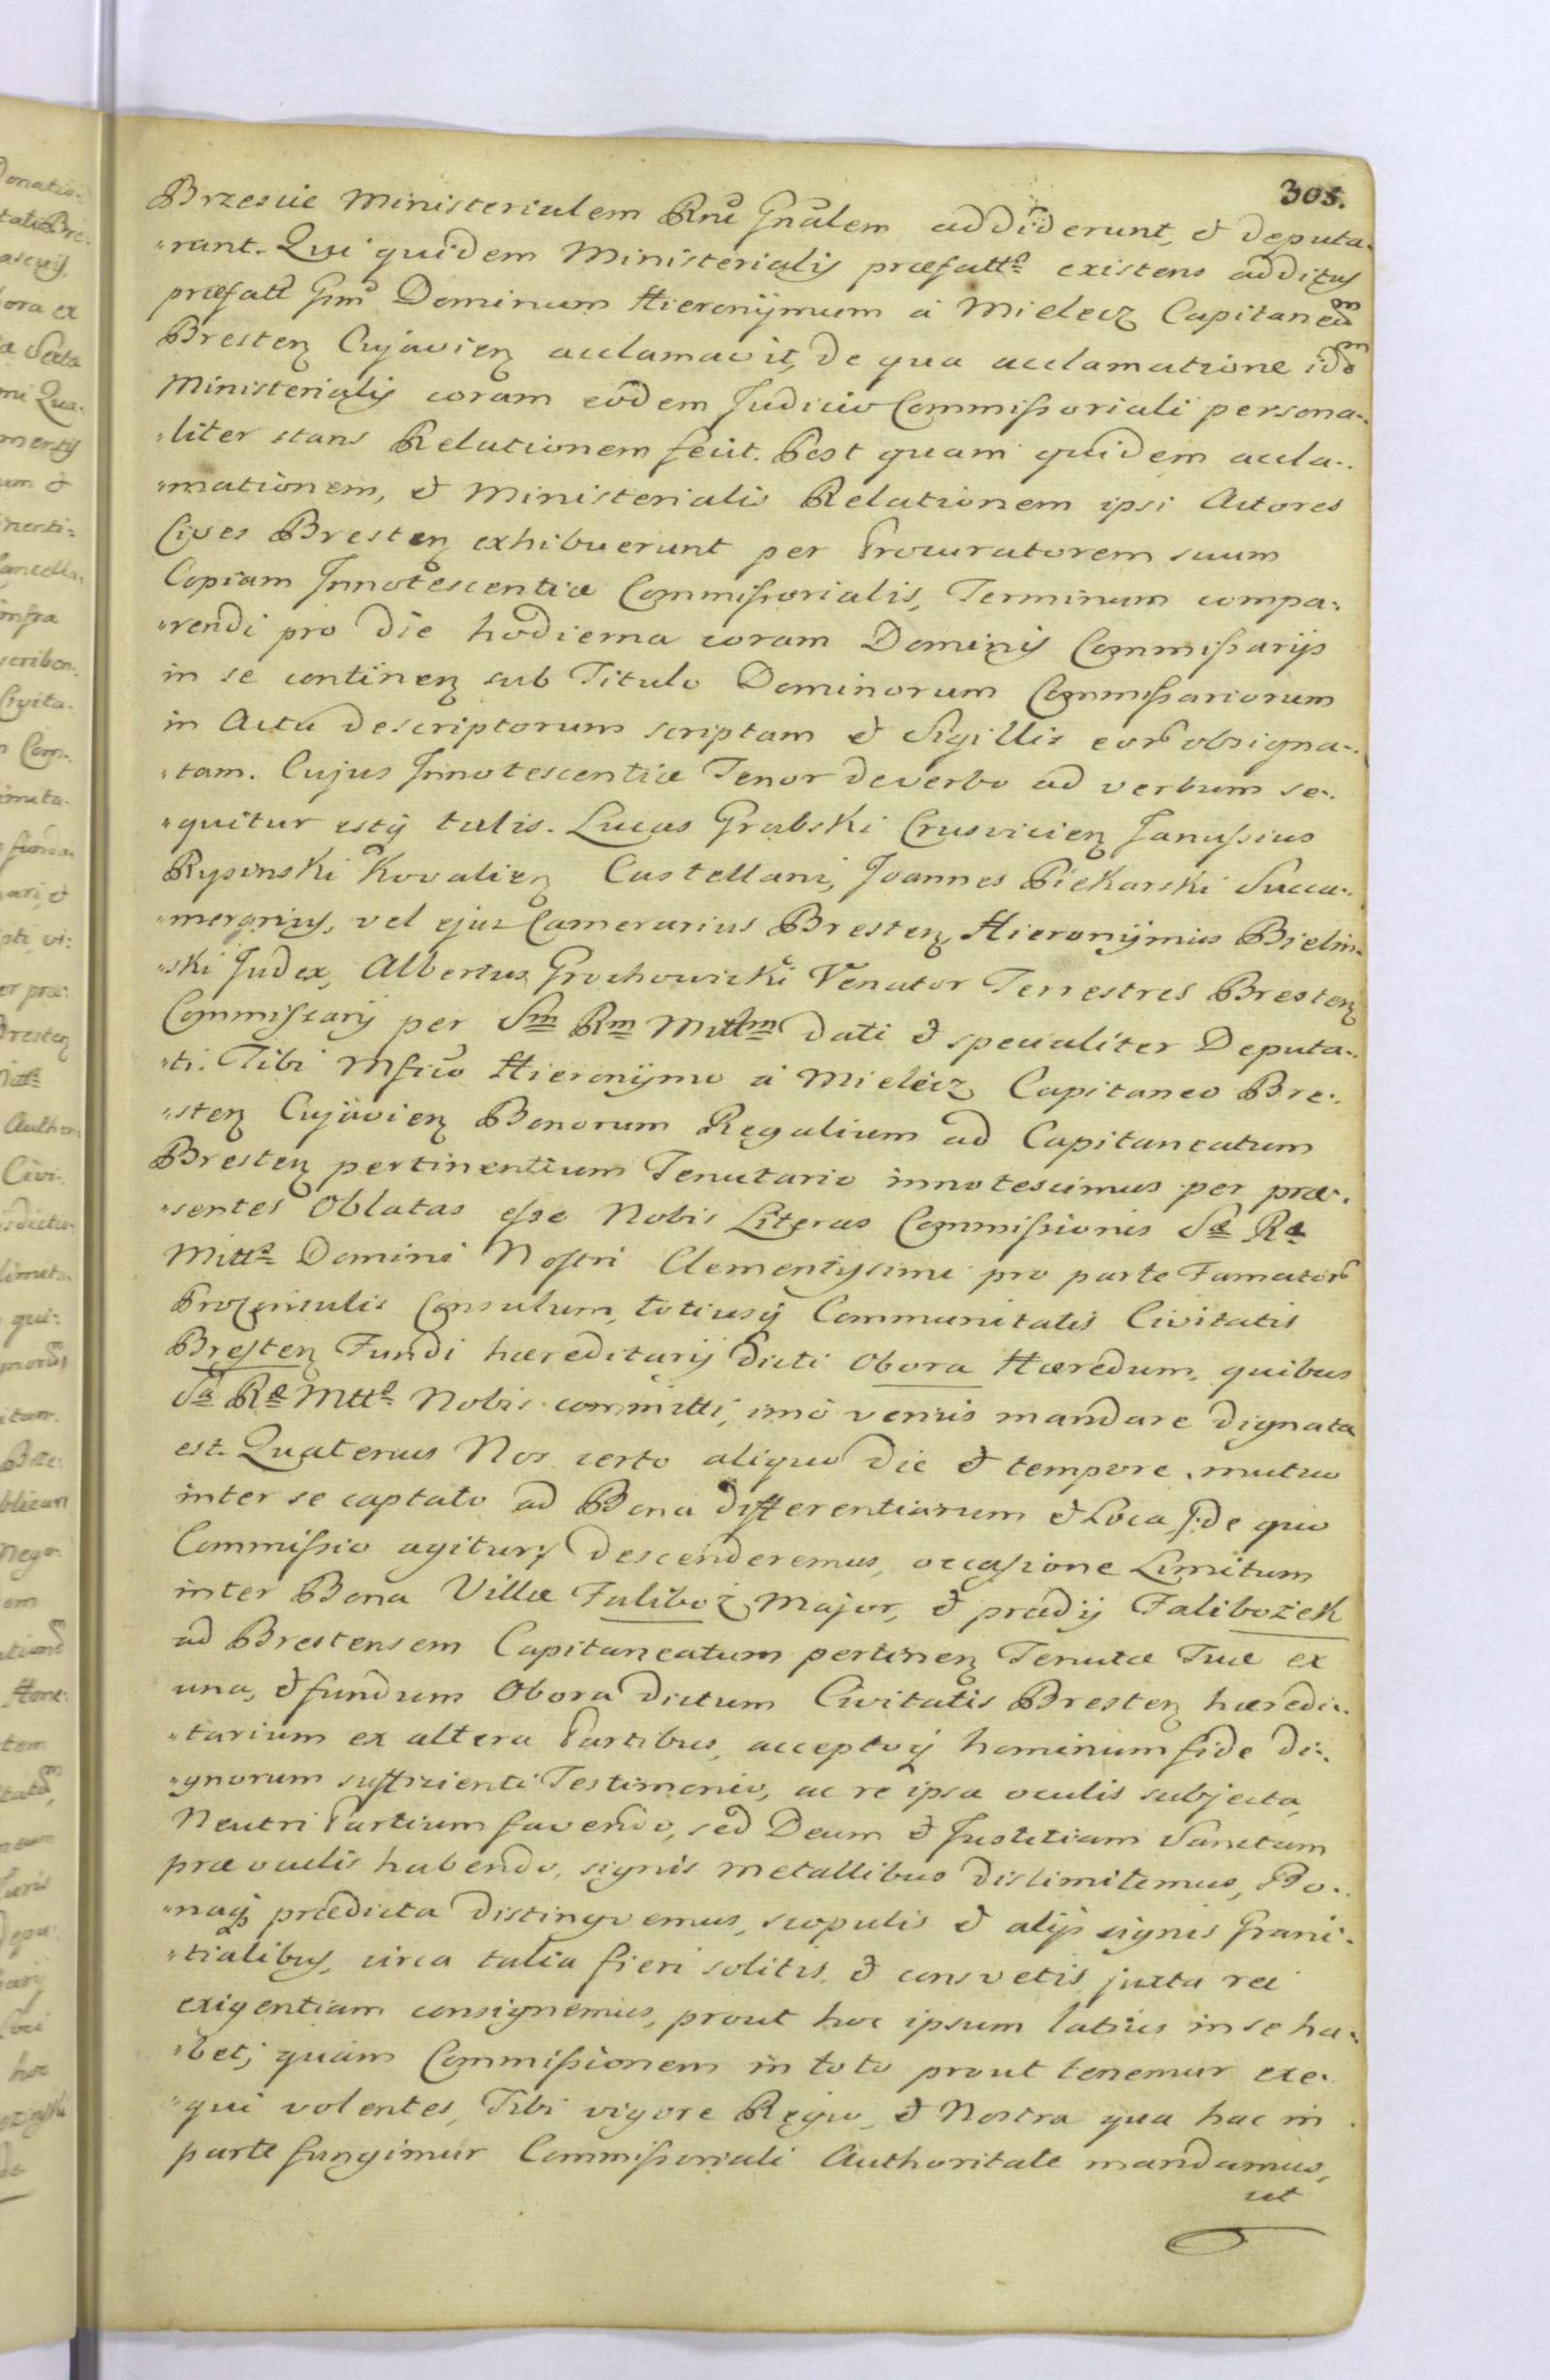 305.
Brzescie Ministerialem Rnĩ Gnalem addiderunt, & deputa-
-rant. Qui quidem Ministerialis præfatt9 existens additus
præfatt Gm Dominum Hieronÿmum á Mielecz Capitaneum
Bresten Cujavien acclamavit, de qua acclamatione idem
Ministerialis coram eodem Judicio Commissoriali persona-
-liter stans Relationem fecit. Post quam quidem accla-
-mationem, & Ministerialis Relationem ipsi Actores
Cives Bresten exhibuerunt per Procuratorem suum
Copiam Innotescentiæ Commissorialis, Terminum compa-
-rendi pro die hodierna coram Dominis Commissarijs
in se continen sub Titulo Dominorum Commissariorum
in Actu descriptorum scriptam & Sigillis eor obsigna-
-tam. Cujus Innotescentiæ Tenor de verbo ad verbum se-
-quitur estq talis. Lucas Grabski Crusvicien Janussius
Rysinski Kovalien Castellani, Joannes Piekarski Succa-
-merarius, vel ejus Camerarius Bresten, Hieronÿmus Bielin-
-ski Judex, Albertus Grochowicki Venator Terrestres Bresten
Commissarij per Sm Rm Mttm dati & specialiter Deputa-
-ti. Tibi Mfico Hieronÿmo á Mielecz Capitaneo Bre-
-sten Cujavien Bonorum Regalium ad Capitaneatum
Bresten pertinentium Tenutario innotescimus per præ-
-sentes Oblatas esse Nobis Literas Commissionis Sæ Ræ
Mtt9 Domini Nostri Clementissimi pro parte Famator
Proconsulis Consulum, totiusq Communitatis Civitatis
Bresten Fundi hæreditarij dicti Obora Hæredum, quibus
Sa Ra Mtt9 Nobis committi, imò verius mandare dignata
est. Quatenus Nos certo aliquo die & tempore, mutuo
inter se captato ad Bona differentiarum & Loca /: de quo
Commissio agitur :/ descenderemus, occasione Limitum
inter Bona Villæ Faliboż Major, & prædij Falibożek
ad Brestensem Capitaneatum pertinen Tenutæ Tuæ ex
una, & fundum Obora dictum Civitatis Bresten hæredi-
-tarium ex altera Partibus, acceptoq hominum fide di-
-gnorum sufficienti Testimonio, ac re ipsa oculis subjecta,
Neutri Partium favendo, sed Deum & Justitiam Sanctam
præ oculis habendo, signis metallibus dislimitemus, Bo-
-naq prædicta distingvemus, scopulis & alijs signis Grani-
-tialibus, circa talia fieri solitis & consvetis juxta rei
exigentiam consignemus, prout hoc ipsum latius in se ha-
-bet; quam Commissionem in toto prout tenemur exe-
-qui volentes, Tibi vigore Regio, & Nostra qua hac in
parte fungimur Commissoriali Authoritate mandamus,
ut